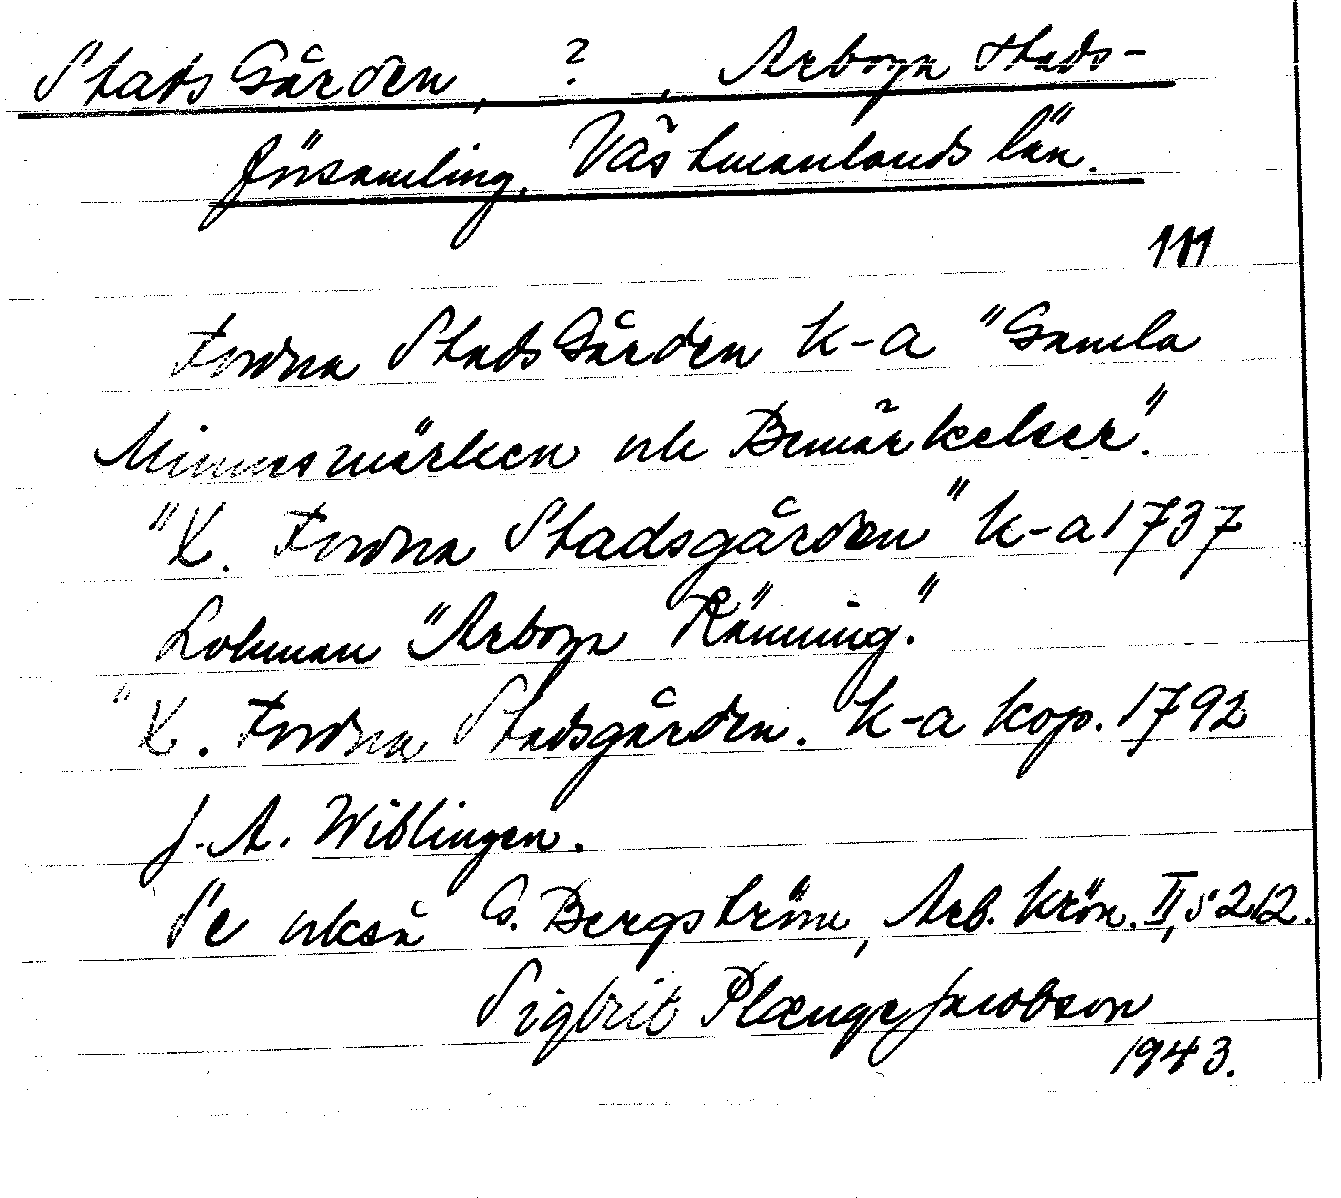 StadsGården, ?, Arboga stads-
församling, Västmanlands län.
111
Fordna StadsGården k-a "Gamla
Minnesmärken och Bemärkelser".
"X. Fordna Stadsgården" k-a 1737
Lohman "Arboga Känning."
"X. Fordna Stadsgården. k-a kop. 1792
J. A. Wiblingen.
Se också G. Bergström, Arb. krön. II, s 212.
Sigbrit Plænge Jacobson
1943.